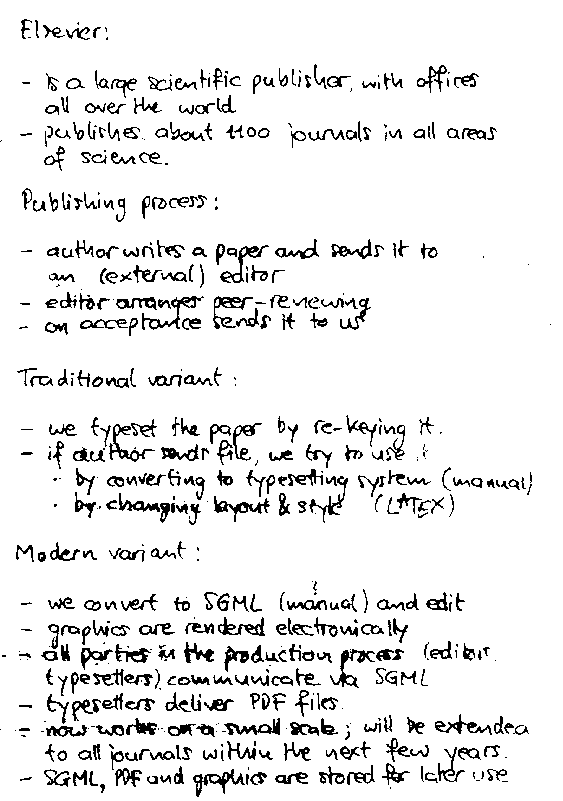 Elsevier:
- is a large scientific publisher, with offices
all over the world
- publishes about 1100 journals in all areas
of science.
Publishing process:
- author writes a paper and sends it to
an (external) editor
- editor arranges peer-reviewing
- on acceptance sends it to us
Traditional variant:
- we typeset the paper by re-keying it.
- if author sends file, we try to use it
· by converting to typesetting system (manual)
· by changing layout & style (LATEX)
Modern variant:
- we convert to SGML (manual) and edit
- graphics are rendered electronically
- all parties in the production process (editor,
typesetters) communicate via SGML
- typesetters deliver PDF files.
- now works on a small scale; will be extended
to all journals within the next few years.
- SGML, PDF and graphics are stored for later use